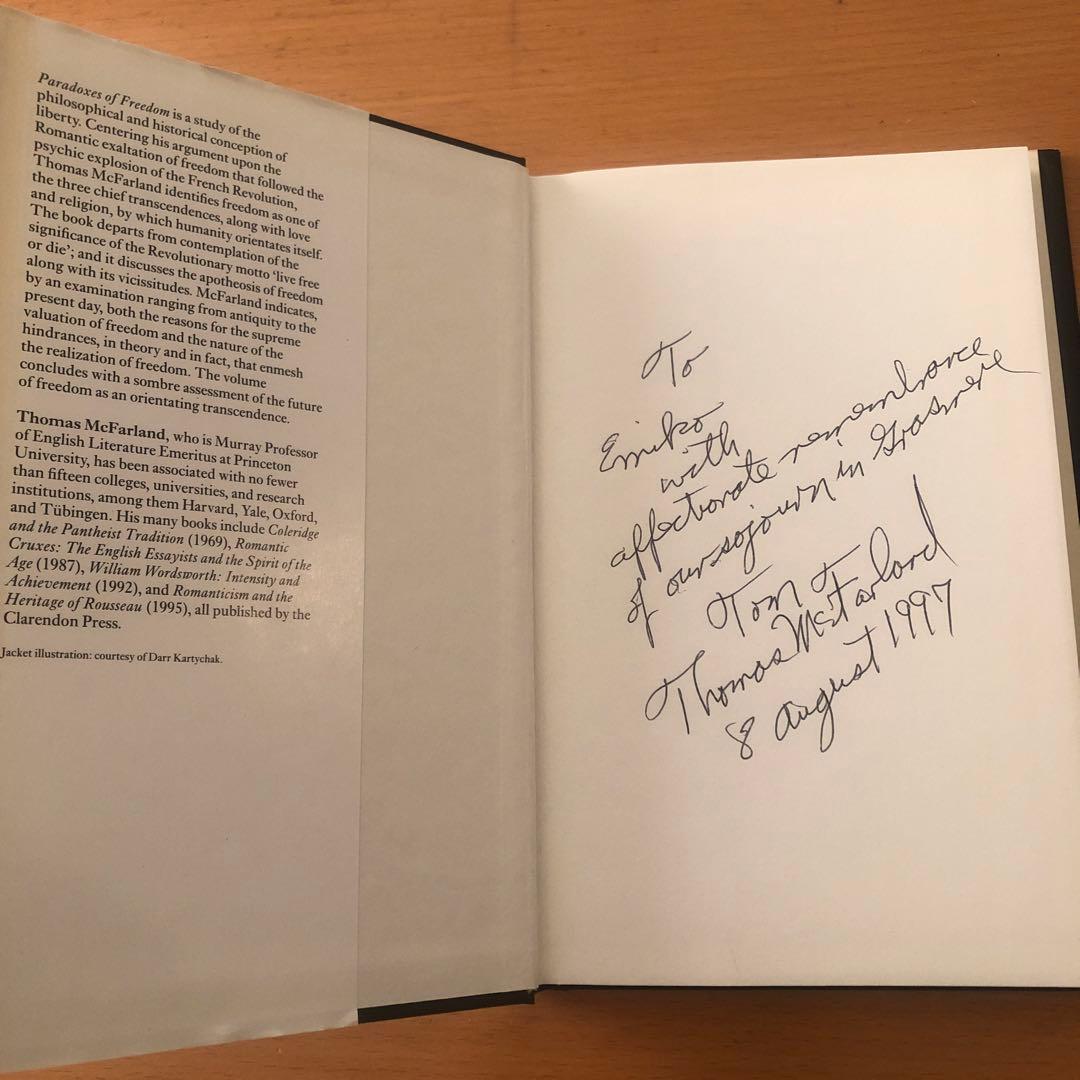 Paradoxes of Freedom is a study of the
philosophical and historical conception of
liberty. Centering his argument upon the
Romantic exaltation of freedom that followed the
psychic explosion of the French Revolution,
Thomas McFarland identifies freedom as one of
the three chief transcendences, along with love
and religion, by which humanity orientates itself.
The book departs from contemplation of the
significance of the Revolutionary motto ‘live free
or die’; and it discusses the apotheosis of freedom
along with its vicissitudes. McFarland indicates,
by an examination ranging from antiquity to the
present day, both the reasons for the supreme
valuation of freedom and the nature of the
hindrances, in theory and in fact, that enmesh
the realization of freedom. The volume
concludes with a sombre assessment of the future
of freedom as an orientating transcendence.
Thomas McFarland, who is Murray Professor
of English Literature Emeritus at Princeton
University, has been associated with no fewer
than fifteen colleges, universities, and research
institutions, among them Harvard, Yale, Oxford,
and Tübingen. His many books include Coleridge
and the Pantheist Tradition (1969), Romantic
Cruxes: The English Essayists and the Spirit of the
Age (1987), William Wordsworth: Intensity and
Achievement (1992), and Romanticism and the
Heritage of Rousseau (1995), all published by the
Clarendon Press.
Jacket illustration: courtesy of Darr Kartychak.
To
Emiko
with
affectionate remembrance
of our sojourn in Grasmere
Tom
Thomas McFarland
8 August 1997